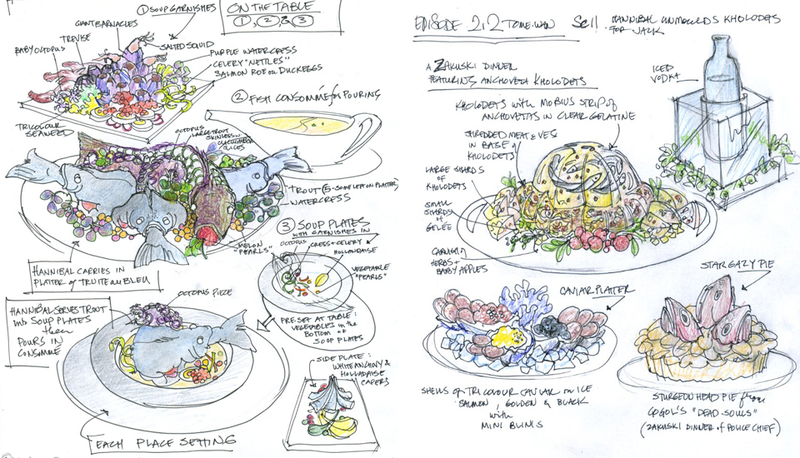 ① SOUP GARNISHES
ON THE TABLE
①, ② & ③
GIANT BARNACLES
TREVISE
BABY OCTOPUS
SALTED SQUID
PURPLE WATERCRESS
CELERY "NETTLES"
SALMON ROE ON DUCK EGGS
TRICOLOUR
SEAWEED
② FISH CONSOMME FOR POURING
OCTOPUS
LARGE TROUT
SKINLESS IN
CUCUMBER
SLICES
TROUT (5 - SOME LEFT ON PLATTER)
WATERCRESS
MELON
"PEARLS"
HANNIBAL CARRIES IN
PLATTER OF TRUITE AU BLEU
③ SOUP PLATES
WITH GARNISHES IN
OCTOPUS
CRESS + CELERY &
HOLLANDAISE
VEGETABLE
"PEARLS"
PRESET AT TABLE:
VEGETABLES IN THE
BOTTOM OF
SOUP PLATES
HANNIBAL SERVES TROUT
INTO SOUP PLATES
THEN
POURS IN
CONSOMME
OCTOPUS PIECE
SIDE PLATE:
WHITE ANCHOVY &
HOLLANDAISE
CAPERS
EACH PLACE SETTING
EPISODE 2.2 TOME-WAN SC 11 HANNIBAL UNMOULDS KHOLODETS
FOR JACK
A ZAKUSKI DINNER
FEATURING ANCHOVETA KHOLODETS
ICED
VODKA
KHOLODETS WITH MOBIUS STRIP OF
ANCHOVETAS IN CLEAR GELATINE
SHREDDED MEAT & VEG
IN BASE OF
KHOLODETS
LARGE SHARDS
OF KHOLODETS
SMALL
SHARDS
OF
GELEE
GARNISH
HERBS +
BABY APPLES
CAVIAR PLATTER
STARGAZY PIE
SHELLS OF TRICOLOUR CAVIAR ON ICE
SALMON, GOLDEN & BLACK
WITH
MINI BLINIS
STURGEON HEAD PIE FROM
GOGOL'S "DEAD SOULS"
(ZAKUSKI DINNER OF POLICE CHIEF)